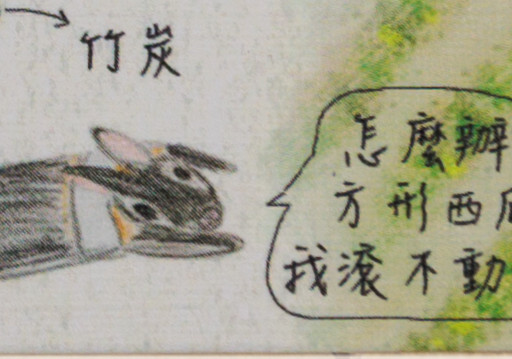 竹炭
怎麼辦
方形西瓜
我滾不動